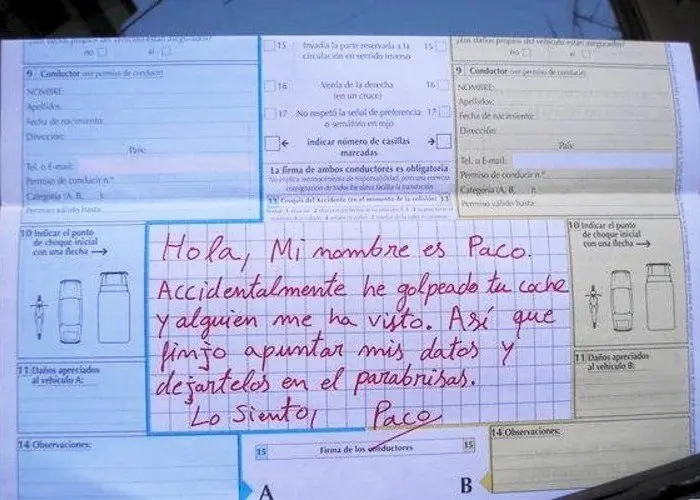 no ☐ si ☐
9 Conductor (ver permiso de conducir)
NOMBRE:
Apellidos:
Fecha de nacimiento:
Dirección:
País:
Tel. o E-mail:
Permiso de conducir n.º
Categoría (A, B, ...):
Permiso válido hasta:
10 Indicar el punto
de choque inicial
con una flecha →
11 Daños apreciados
al vehículo A:
14 Observaciones:
15 Invadía la parte reservada a la 15
circulación en sentido inverso
16 Venía de la derecha 16
(en un cruce)
17 No respetó la señal de preferencia 17
o semáforo en rojo
← indicar número de casillas →
marcadas
La firma de ambos conductores es obligatoria
13 Croquis del Accidente (en el momento de la colisión) 13
Hola, Mi nombre es Paco.
Accidentalmente he golpeado tu coche
y alguien me ha visto. Así que
finjo apuntar mis datos y
dejartelos en el parabrisas.
Lo siento, Paco
15 Firma de los conductores 15
A B
no ☐ si ☐
9 Conductor (ver permiso de conducir)
NOMBRE:
Apellidos:
Fecha de nacimiento:
Dirección:
País:
Tel. o E-mail:
Permiso de conducir n.º
Categoría (A, B, ...):
Permiso válido hasta:
10 Indicar el punto
de choque inicial
con una flecha →
11 Daños apreciados
al vehículo B:
14 Observaciones: